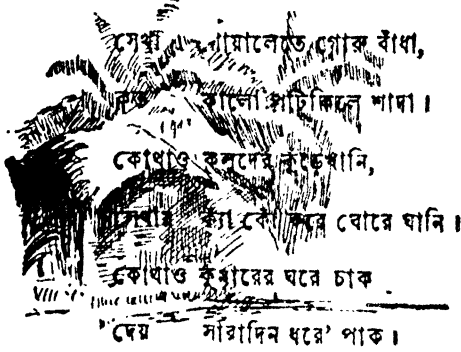 সেথা গোয়ালেতে গোরু বাঁধা,
কত কালো পাটকিলে শাদা।
কোথাও কলুদের কুঁড়েখানি,
সেথায় ক্যাঁ কোঁ করে ঘোরে ঘানি।
কোথাও কুমারের ঘরে চাক
দেয় সারাদিন ধরে’ পাক।